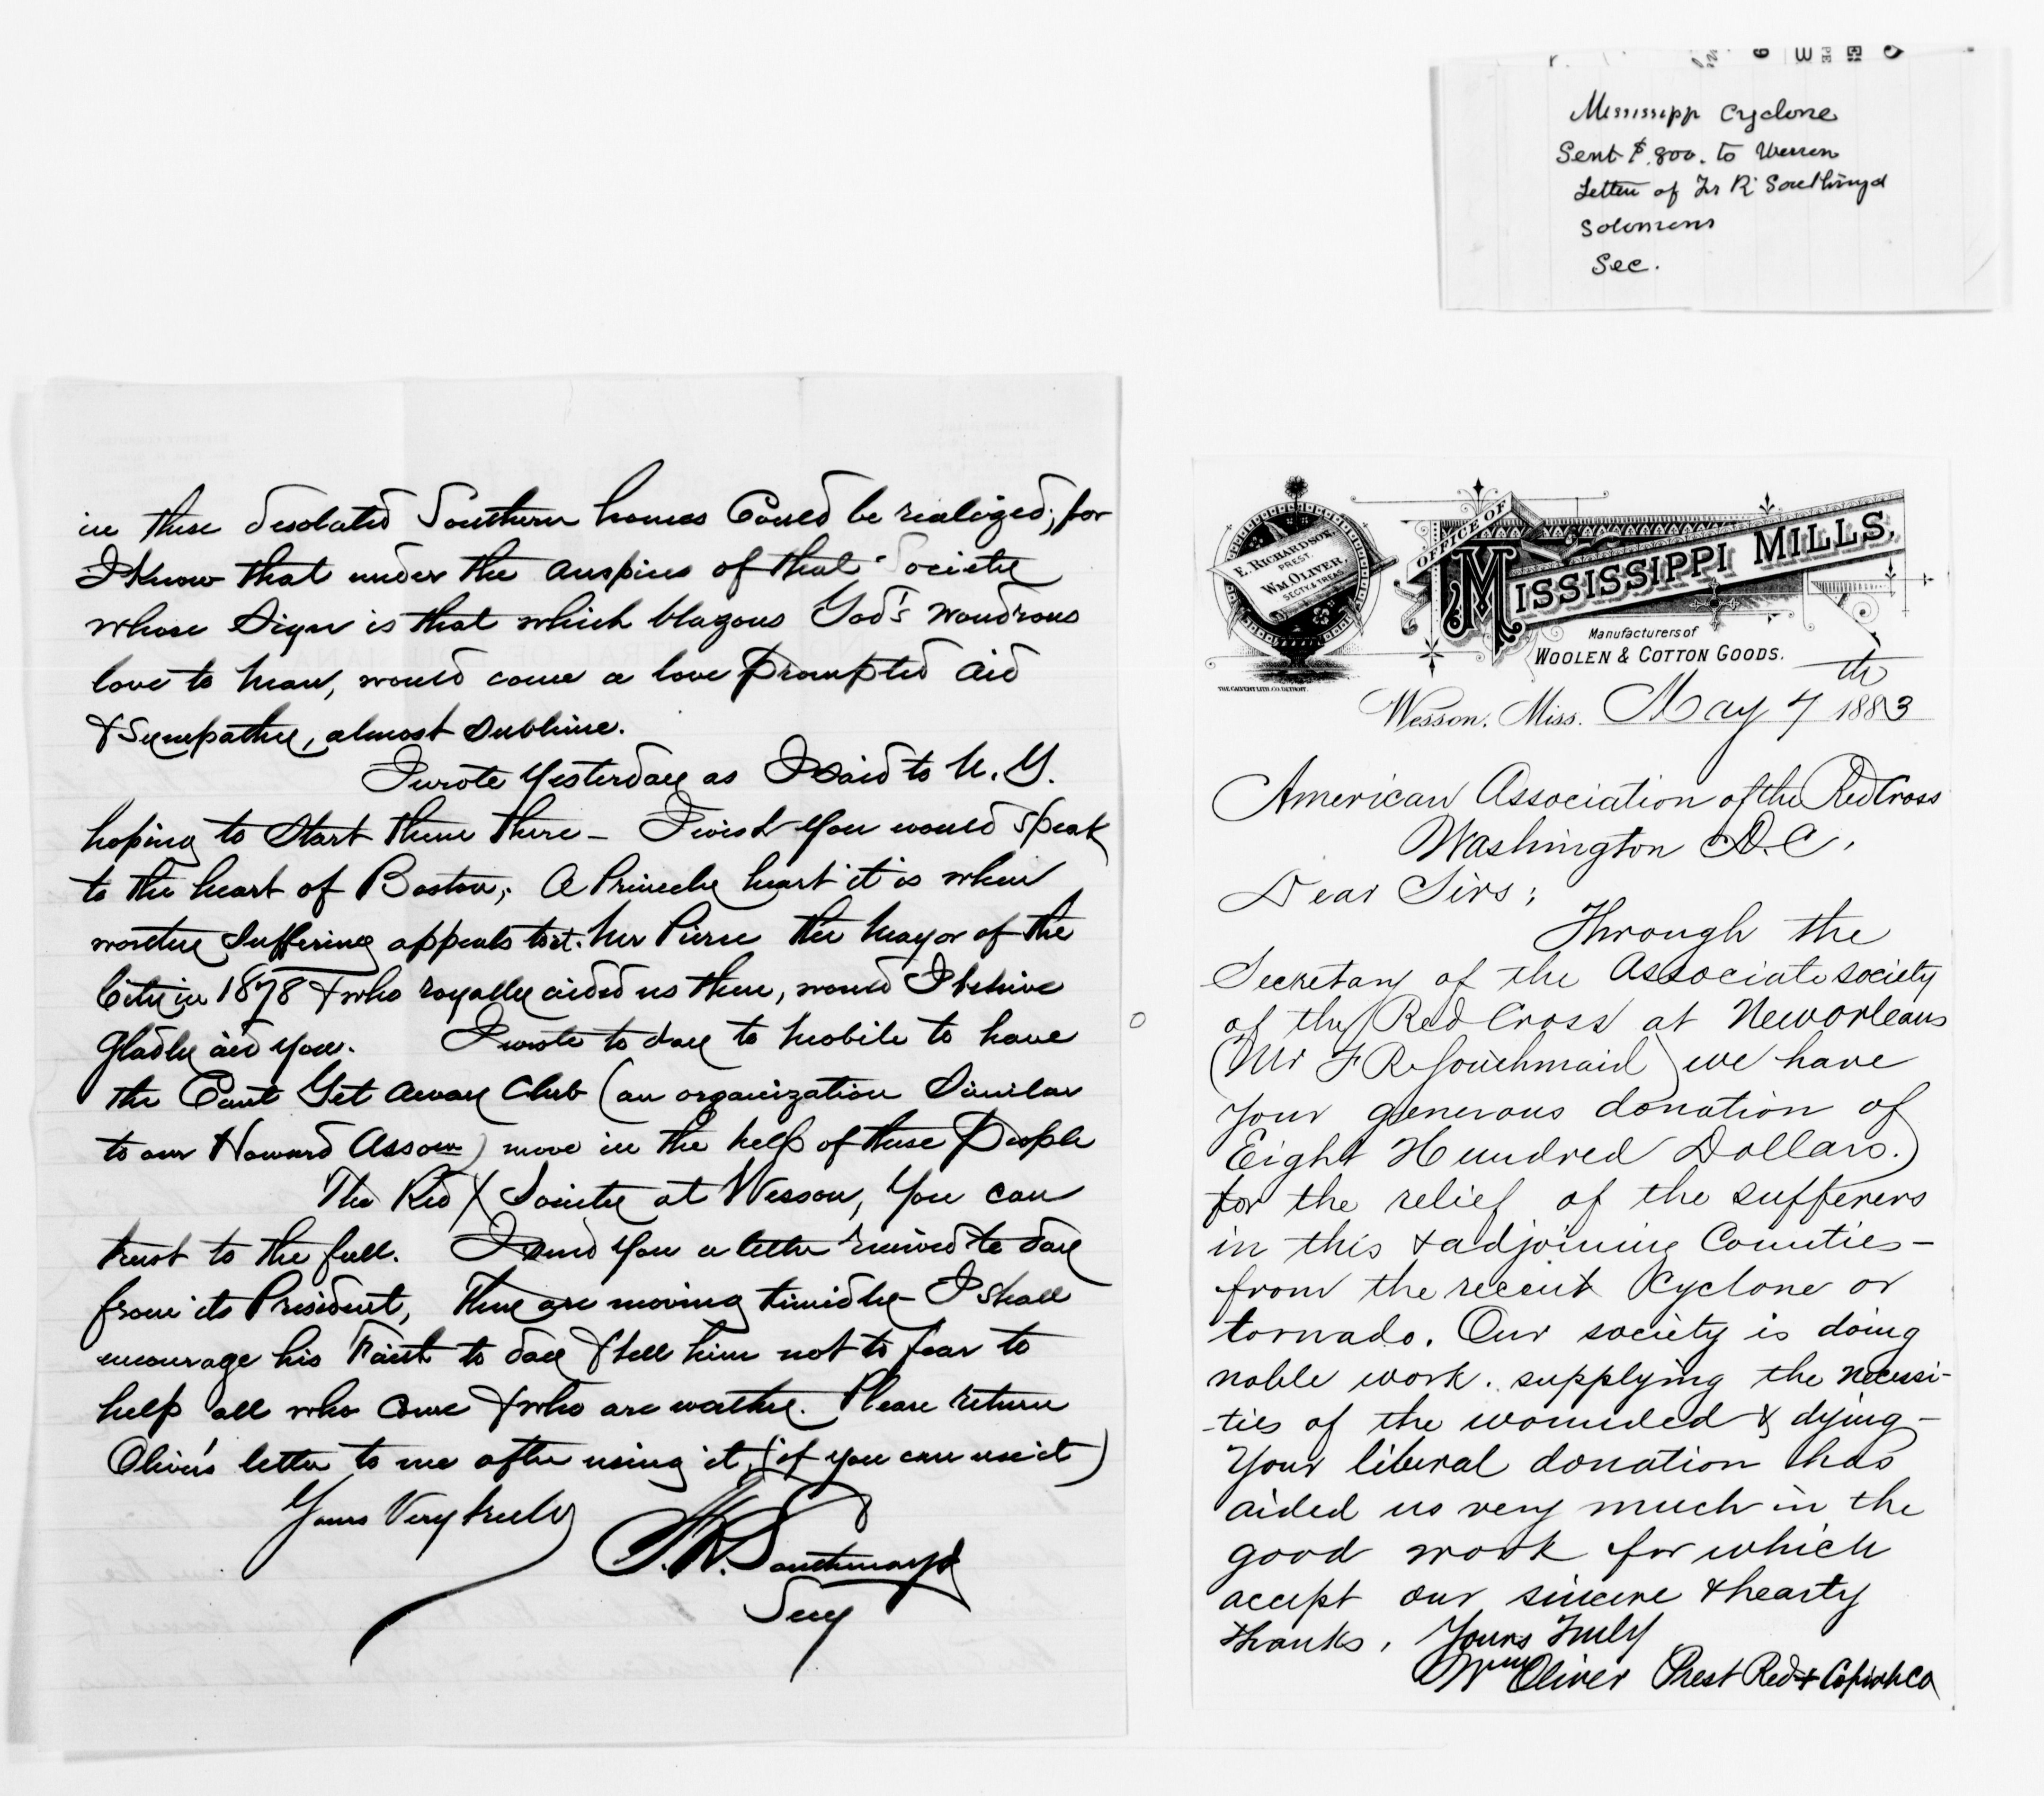 Mississipp Cyclone
Sent $800. to Wesson
Letter of F R Southmayd
Solomons
Sec.
in these desolated Southern homes Could be realized, for
I Know that under the auspices of that Society
whose Sign is that which blazons God's wondrous
love to man, would come a love prompted aid
& Sympathy, almost Sublime.
I wrote Yesterday as I Said to N. Y.
hoping to Start them there – I wish you would speak
to the heart of Boston, A Princely heart it is when
worthy Suffering appeals to it. Mr Pierce the Mayor of the
City in 1878 & who royally aided us then, would I believe
Gladly aid you. I wrote to day to Mobile to have
the Cant Get Away Club (an organization Similar
to our Howard Asson) move in the help of these People
The Red X Society at Wesson, You can
trust to the full. I send You a letter received to day
from its President, They are moving timidly – I shall
encourage his Faith to day & tell him not to fear to
help all who Come & who are worthy. Please return
Oliver's letter to me after using it, (if you can use it)
Yours Very truly
F. R. Southmayd
Secy
E. RICHARDSON,
PREST.
WM. OLIVER,
SECTY & TREAS.
OFFICE OF
MISSISSIPPI MILLS,
Manufacturers of
WOOLEN & COTTON GOODS.
THE CALVERT LITH. CO. DETROIT.
Wesson, Miss. May 7th 1883
American Association of the Red Cross
Washington D.C.
Dear Sirs;
Through the
Secretary of the Associate society
of the Red Cross at New Orleans
(Mr F R Southmaid) we have
your generous donation of
Eight Hundred Dollars.)
for the relief of the sufferers
in this & adjoining Counties –
from the recent Cyclone or
tornado. Our society is doing
noble work. supplying the necessi-
-ties of the wounded & dying –
Your liberal donation has
aided us very much in the
good work for which
accept our sincere & hearty
thanks. Yours Truly
Wm Oliver Prest Red + Copiah Co